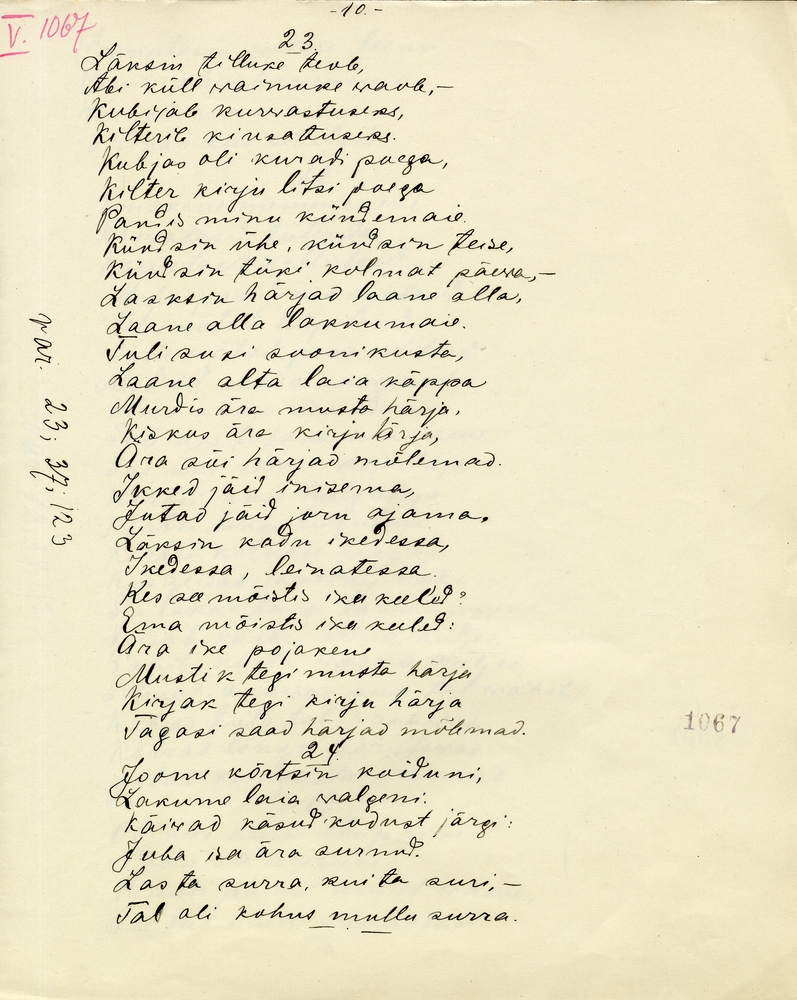 - 10. -
V. 1067
23.
Läksin tilluke teole,
Abi küll waimuke waole, -
Kubijale kurwastuseks,
Kilterile kiusatuseks.
Kubjas oli kuradi poega,
Kilter kirju litsi poega
Pandis minu kündemaie.
Kündsin ühe, kündsin teise,
Kündsin tüki kolmat päewa, -
Lasksin härjad laane alla,
Laane alla lakkumaie.
Tuli susi soonikusta,
Laane alta laia käppa
Murdis ära musta härja,
Kiskus ära kirju härja,
Ära sõi härjad mõlemad.
Ikked jäid inisema,
Jutad jäid joru ajama.
Läksin kodu ikedessa,
Ikedessa, leinatessa.
Kes see mõistis iku keeled?
Ema mõistis iku keeled:
Ära ike pojakene
Mustik tegi musta härja
Kirjak tegi kirju härja
Tagasi saad härjad mõlemad.
par. 23; 37; 123
1067
24.
Joome kõrtsin koiduni,
Lakume laia walgeni.
Käiwad käsud kodust järgi:
Juba isa ära surnud.
Las ta surra, kui ta suri, -
Tal oli kohus mullu surra.